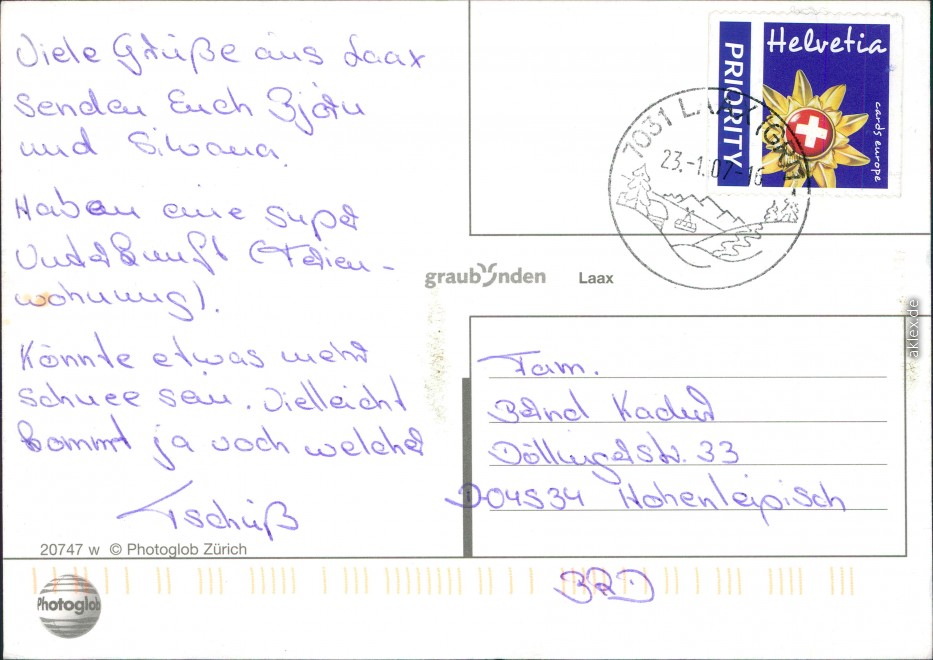 Viele Grüße aus Laax
senden Euch Björn
und Silvana.
Haben eine super
Unterkunft (Ferien-
wohnung).
Könnte etwas mehr
Schnee sein. Vielleicht
kommt ja noch welcher
Tschüß
20747 w © Photoglob Zürich
Photoglob
Helvetia
PRIORITY
cards europe
7031 LAAX (GR) 1
23.-1.07-16
graubünden
Laax
Fam.
Bernd
Döllingerstr. 33
D04934 Hohenleipisch
BRD
aklex.de